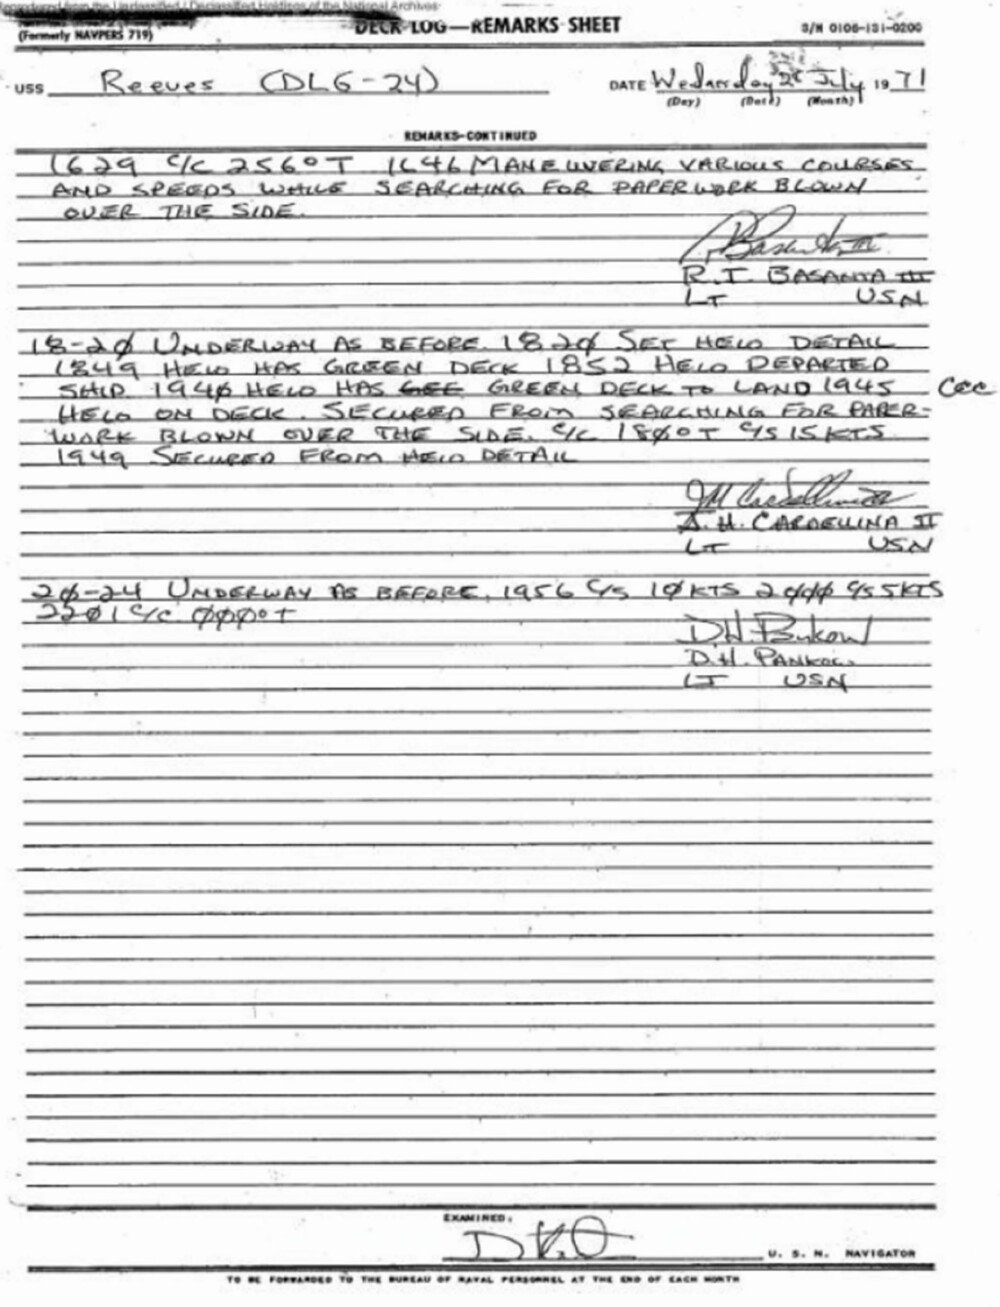 Reproduced from the Unclassified / Declassified Holdings of the National Archives
(Formerly NAVPERS 719)
DECK LOG—REMARKS SHEET
S/N 0106-131-0200
USS Reeves (DLG-24)
DATE Wednesday 28 July 1971
(Day) (Date) (Month)
REMARKS-CONTINUED
1629 C/C 256°T 1646 MANEUVERING VARIOUS COURSES
AND SPEEDS WHILE SEARCHING FOR PAPERWORK BLOWN
OVER THE SIDE.
R.T. BASANTA III
LT USN
18-2Ø UNDERWAY AS BEFORE. 182Ø SET HELO DETAIL
1849 HELO HAS GREEN DECK 1852 HELO DEPARTED
SHIP. 194Ø HELO HAS GREEN DECK TO LAND 1945
HELO ON DECK. SECURED FROM SEARCHING FOR PAPER-
WORK BLOWN OVER THE SIDE. C/C 18Ø°T C/S 15 KTS
1949 SECURED FROM HELO DETAIL
CARDELLINA II
LT USN
2Ø-24 UNDERWAY AS BEFORE. 1956 C/S 1Ø KTS 2ØØØ C/S 5 KTS
22Ø1 C/C ØØØ°T
D.H.
LT USN
EXAMINED:
U. S. N. NAVIGATOR
TO BE FORWARDED TO THE BUREAU OF NAVAL PERSONNEL AT THE END OF EACH MONTH